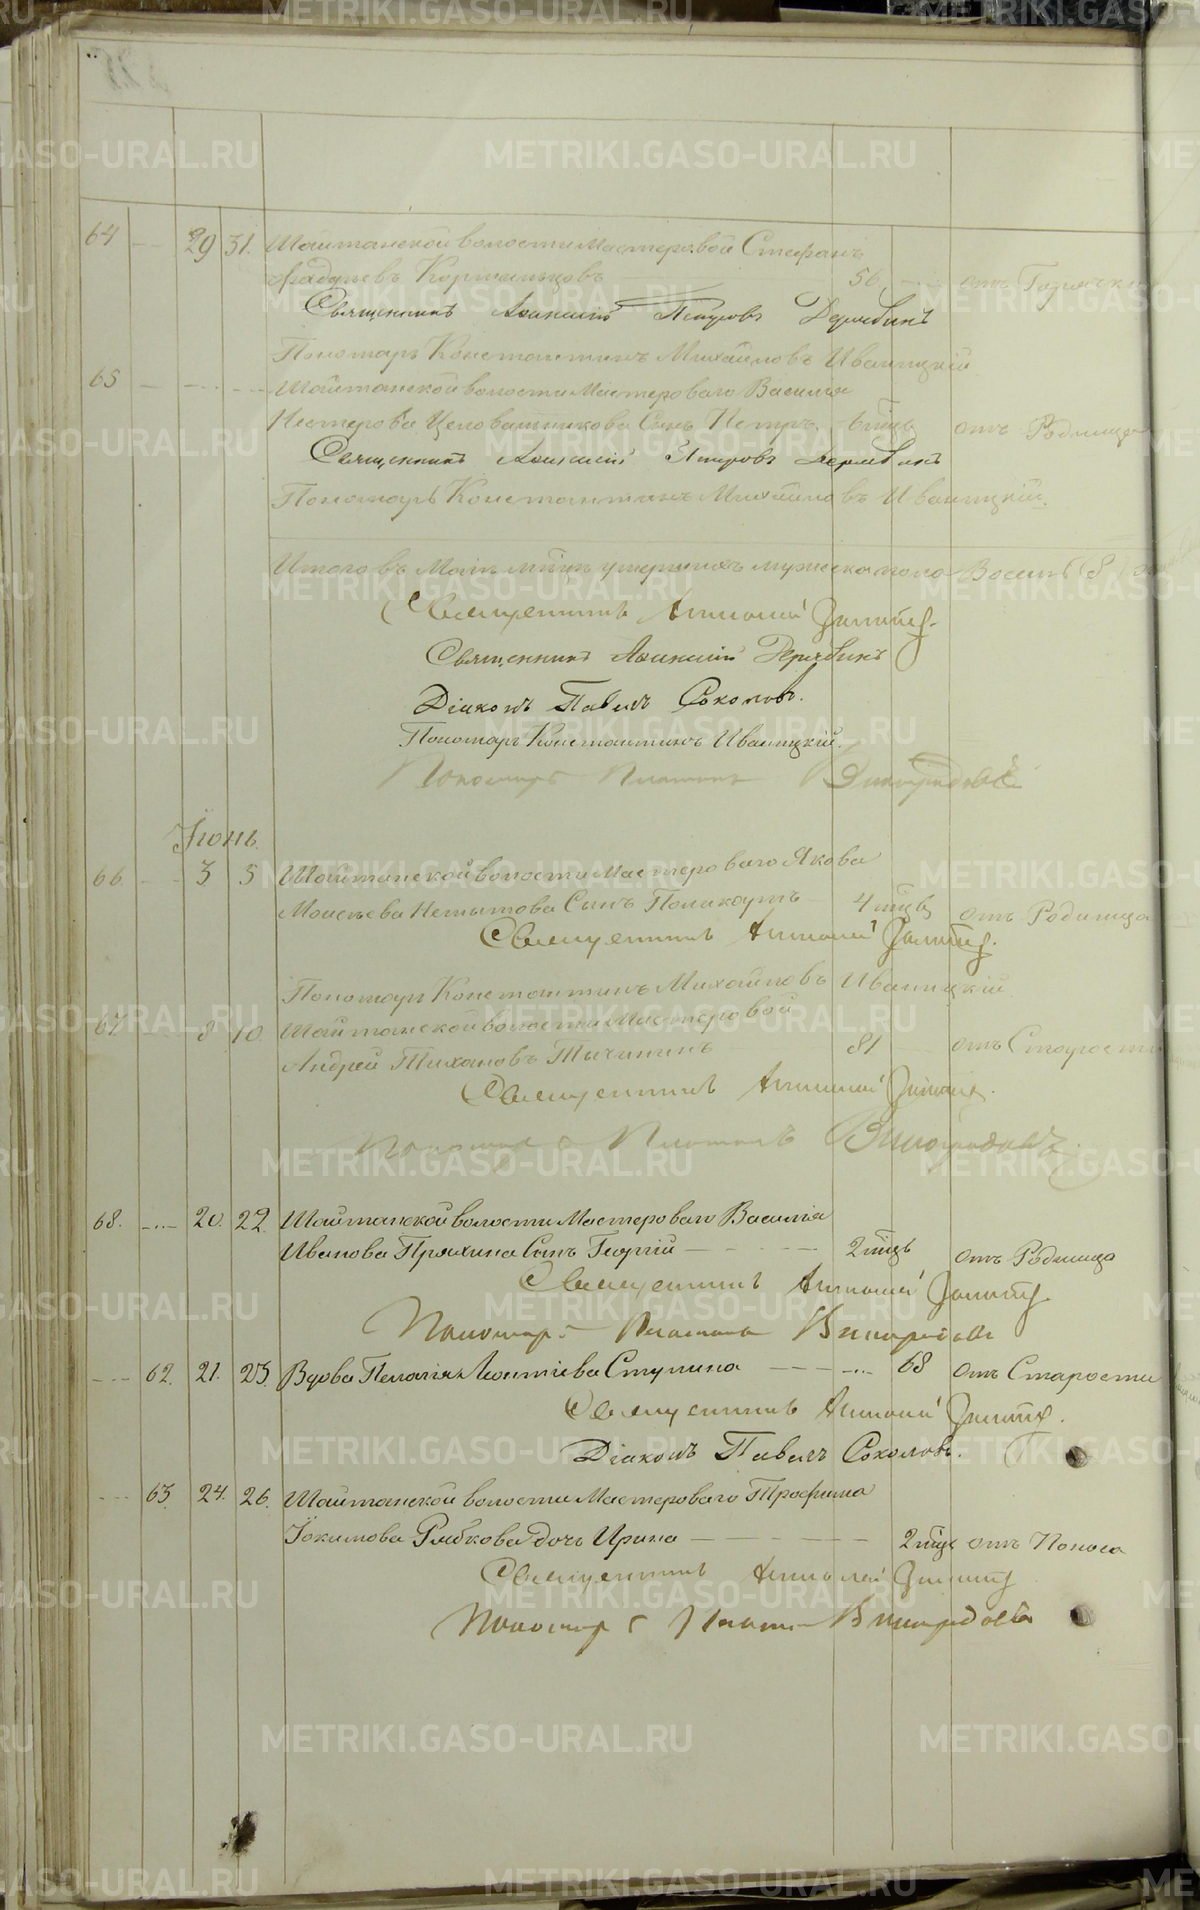 64 29 31. Шайтанской волости Мастеровой Стефанъ
Фадѣевъ Кормильцовъ 56 отъ Горячки
Священникъ Афанасій Петровъ Дерябинъ
Пономарь Константинъ Михайловъ Иваницкій
65 Шайтанской волости Мастероваго Василія
Нестерова Целовальникова Сынъ Петръ отъ Родимца
Священникъ Афанасій Петровъ Дерябинъ
Пономарь Константинъ Михайловъ Иваницкій.
Итого въ Маѣ мѣцѣ умершихъ мужеска пола Восемь (8)
Священникъ Антоній
Священникъ Афанасій Дерябинъ
Діаконъ Павелъ Соколовъ.
Пономарь Константинъ Иваницкій.
Пономарь Платонъ Виноградовъ
Іюнь.
66. 3 5 Шайтанской волости Мастероваго Якова
Моисѣева Сынъ Поликарпъ 4 мѣцъ отъ Родимца
Священникъ Антоній
Пономарь Константинъ Михайловъ Иваницкій
67. 8 10 Шайтанской волости Мастеровой
Андрей Тихоновъ 81 отъ Старости
Священникъ Антоній
Пономарь Платонъ Виноградовъ.
68. 20. 22 Шайтанской волости Мастероваго Василія
Иванова Пряхина Сынъ Георгій 2 мѣцъ отъ Родимца
Священникъ Антоній
Пономарь Платонъ Виноградовъ
62. 21. 23. Вдова Пелагія Леонтіева Ступина 68 отъ Старости
Священникъ Антоній
Діаконъ Павелъ Соколовъ.
63. 24. 26. Шайтанской волости Мастероваго Трофима
Іокимова Рябкова дочь Ирина 2 мѣцъ отъ Поноса
Священникъ Антоній
Пономарь Платонъ Виноградовъ
METRIKI.GASO-URAL.RU